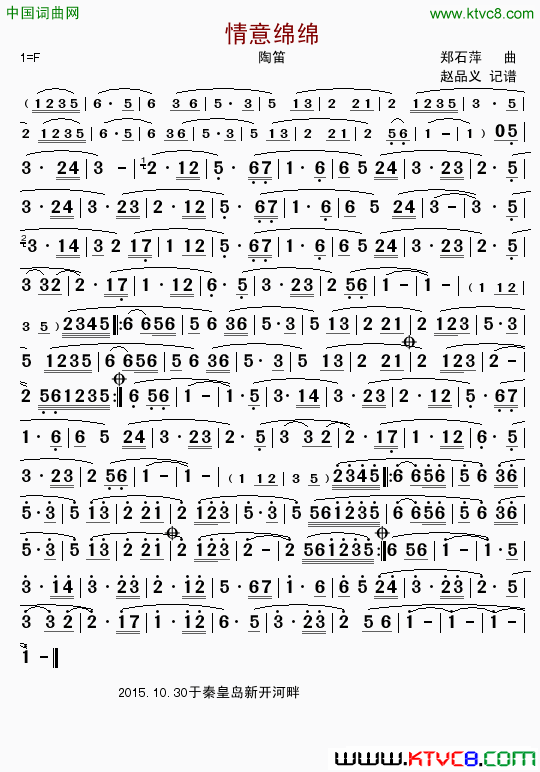 中国词曲网
www.ktvc8.com
情意绵绵
1=F 陶笛 郑石萍 曲
赵品义 记谱
( 1 2 3 5 | 6 · 5 | 6 3 6 | 5 · 3 | 5 1 3 | 2 2 1 | 2 1 2 3 5 | 3 · 5
2 1 2 3 5 | 6 · 5 | 6 3 6 | 5 · 3 | 5 1 3 | 2 2 1 | 2 5 6 | 1 - | 1 ) 0 5
3 · 2 4 | 3 - | 1 2 · 1 2 | 5 · 6 7 | 1 · 6 | 6 5 2 4 | 3 · 2 3 | 2 · 5
3 · 2 4 | 3 · 2 3 | 2 · 1 2 | 5 · 6 7 | 1 · 6 | 6 5 2 4 | 3 - | 3 · 5
2 3 · 1 4 | 3 2 1 7 | 1 1 2 | 5 · 6 7 | 1 · 6 | 6 5 2 4 | 3 · 2 3 | 2 · 5
3 3 2 | 2 · 1 7 | 1 · 1 2 | 6 · 5 | 3 · 2 3 | 2 5 6 | 1 - | ( 1 1 2 |
3 5 ) 2 3 4 5 |: 6 6 5 6 | 5 6 3 6 | 5 · 3 | 5 1 3 | 2 2 1 | 2 1 2 3 | 5 · 3
5 1 2 3 5 | 6 6 5 6 | 5 6 3 6 | 5 · 3 | 5 1 3 | 2 2 1 | 2 1 2 3 | 2 -
2 5 6 1 2 3 5 :| 6 5 6 | 1 - | 1 · 5 | 3 · 1 4 | 3 · 2 3 | 2 · 1 2 | 5 · 6 7
1 · 6 | 6 5 2 4 | 3 · 2 3 | 2 · 5 | 3 3 2 | 2 · 1 7 | 1 · 1 2 | 6 · 5 |
3 · 2 3 | 2 5 6 | 1 - | 1 - | ( 1 1 2 | 3 5 ) 2 3 4 5 |: 6 6 5 6 | 5 6 3 6
5 · 3 | 5 1 3 | 2 2 1 | 2 1 2 3 | 5 · 3 | 5 5 6 1 2 3 5 | 6 6 5 6 | 5 6 3 6
5 · 3 | 5 1 3 | 2 2 1 | 2 1 2 3 | 2 - | 2 5 6 1 2 3 5 :| 6 5 6 | 1 - | 1 · 5
3 · 1 4 | 3 · 2 3 | 2 · 1 2 | 5 · 6 7 | 1 · 6 | 6 5 2 4 | 3 · 2 3 | 2 · 5
3 3 2 | 2 · 1 7 | 1 · 1 2 | 6 · 5 | 3 · 2 3 | 2 5 6 | 1 - | 1 - | 1 -
1 -
2015.10.30于秦皇岛新开河畔
www.KTVC8.com